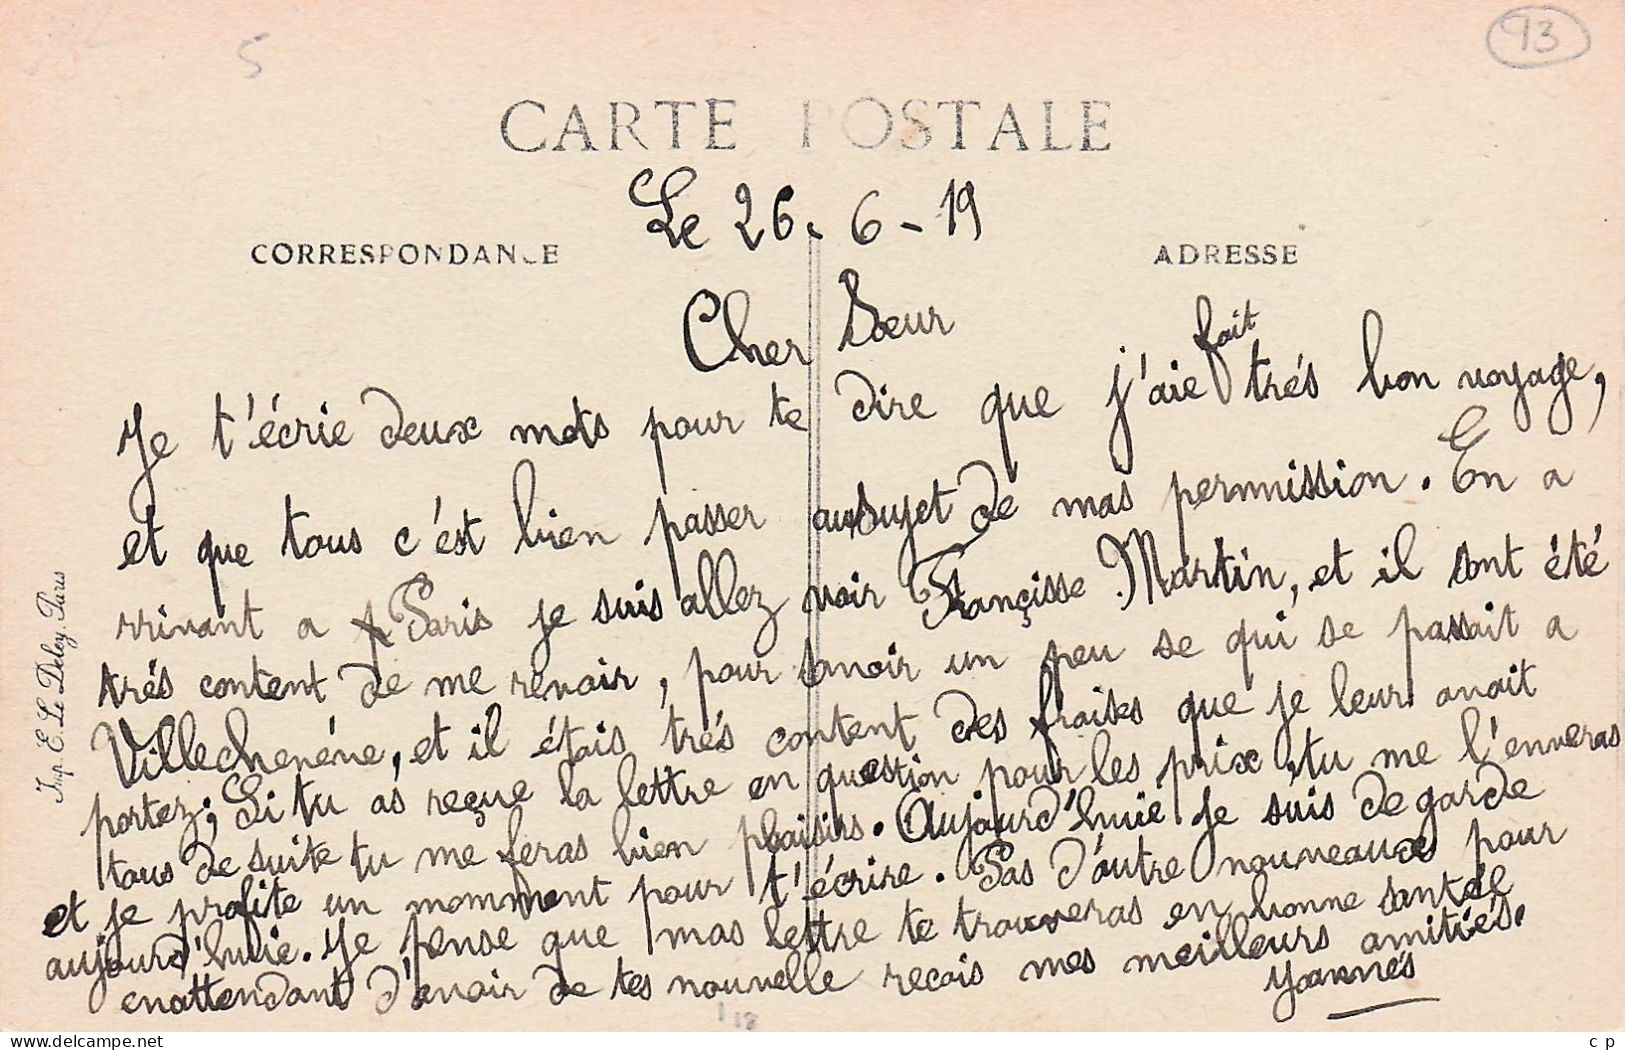 93
5
CARTE POSTALE
Le 26-6-19
CORRESPONDANCE
ADRESSE
Cher Sœur
fait
Je t'écrie deux mots pour te dire que j'aie très bon voyage,
et que tous c'est bien passer ausujet de mas permission. En a
rrivant a Paris je suis allez voir Françisse Martin, et il sont été
trés content de me revoir, pour savoir un peu se qui se passait a
Villechenéne, et il étais trés content des fraises que je leur avait
portez; Si tu as reçue la lettre en question pour les prix, tu me l'enveras
tous de suite tu me feras bien plaisirs. Aujourd'huie je suis de garde
et je profite un momment pour t'écrire. Pas d'autre nouveaux pour
aujourd'huie. Je pense que mas lettre te trouveras en bonne santée
enattendant d'avoir de tes nouvelle recois mes meilleurs amitiés.
Yoannés
Imp. E. Le Deley, Paris
delcampe.net
c p